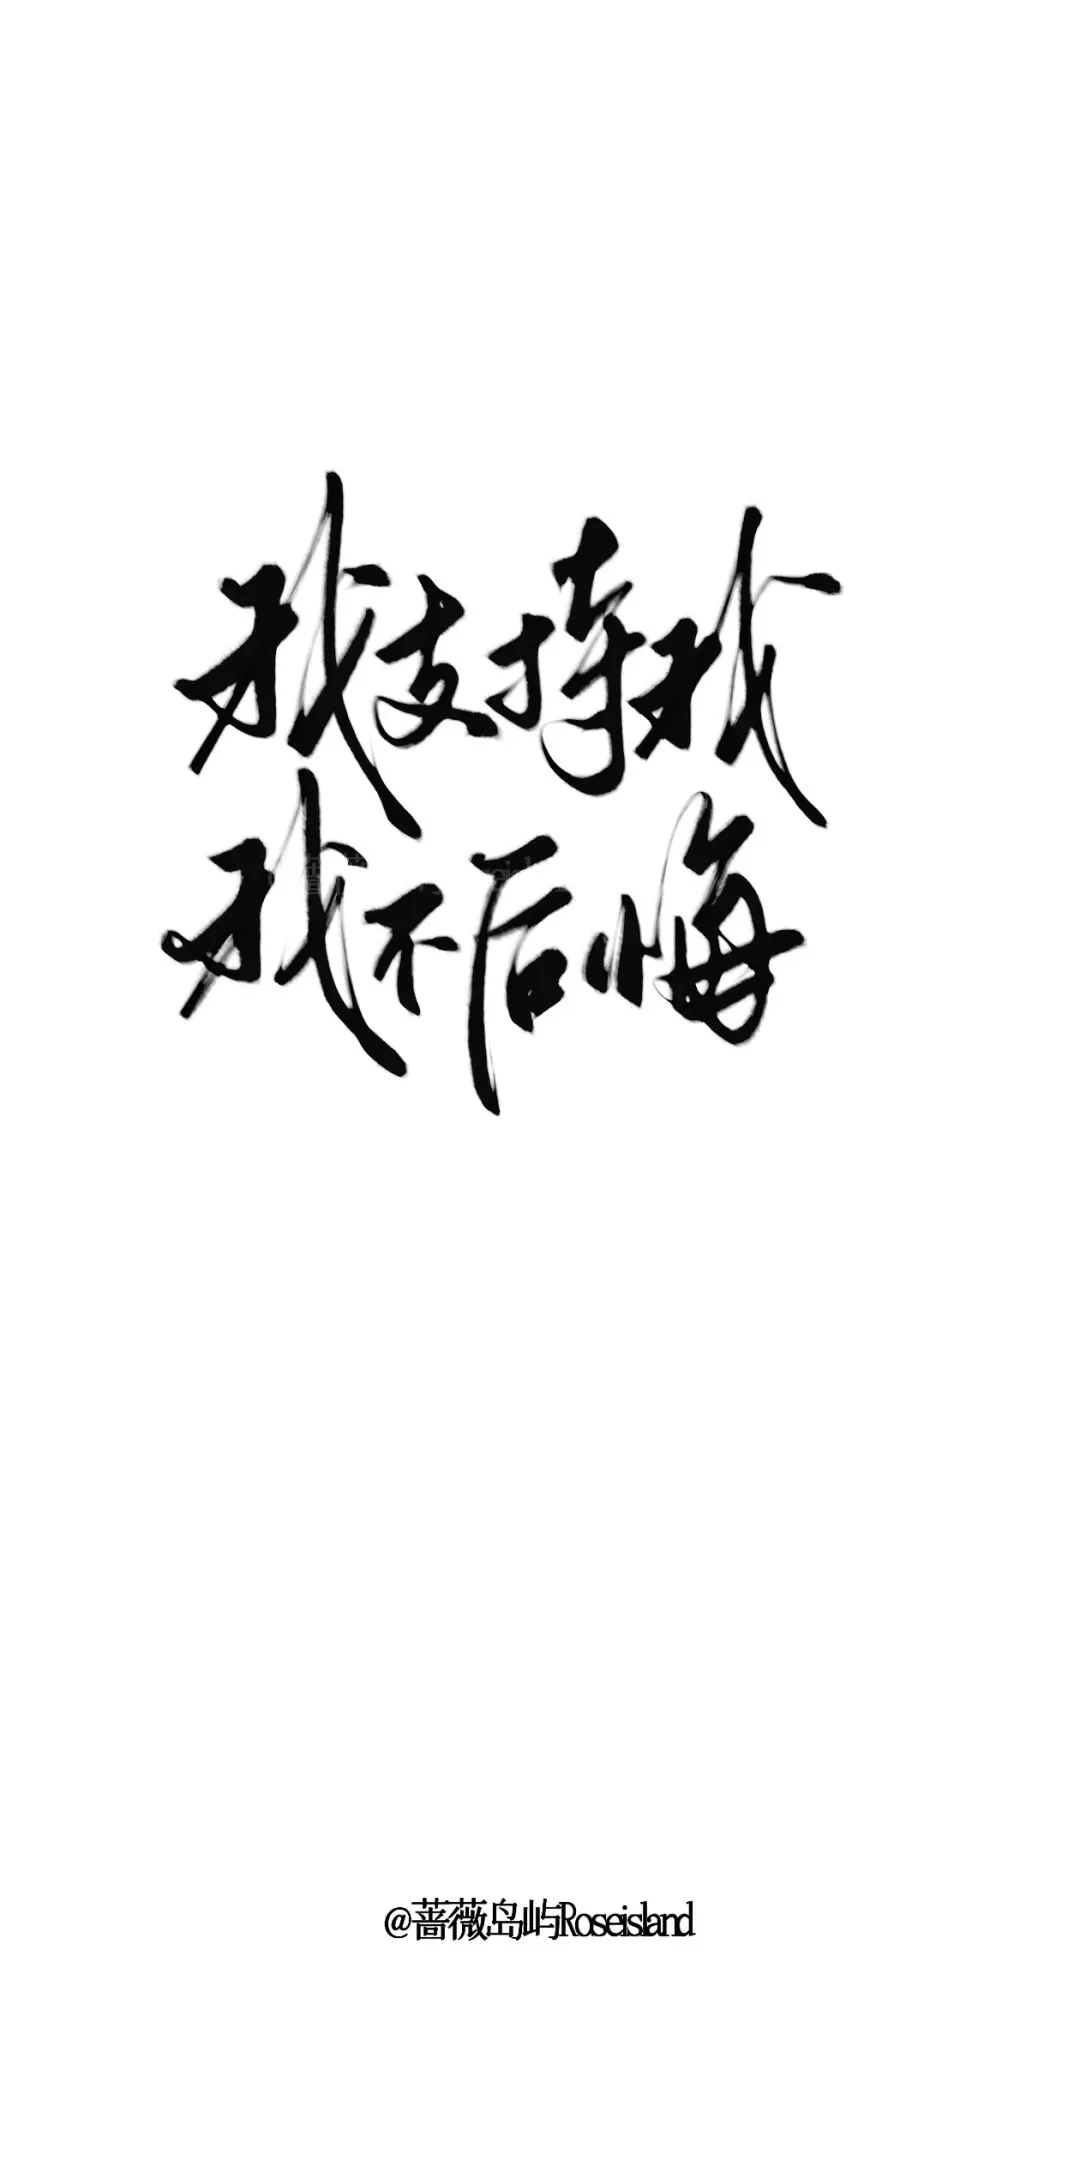 我支持我
我不后悔
@蔷薇岛屿Roseisland